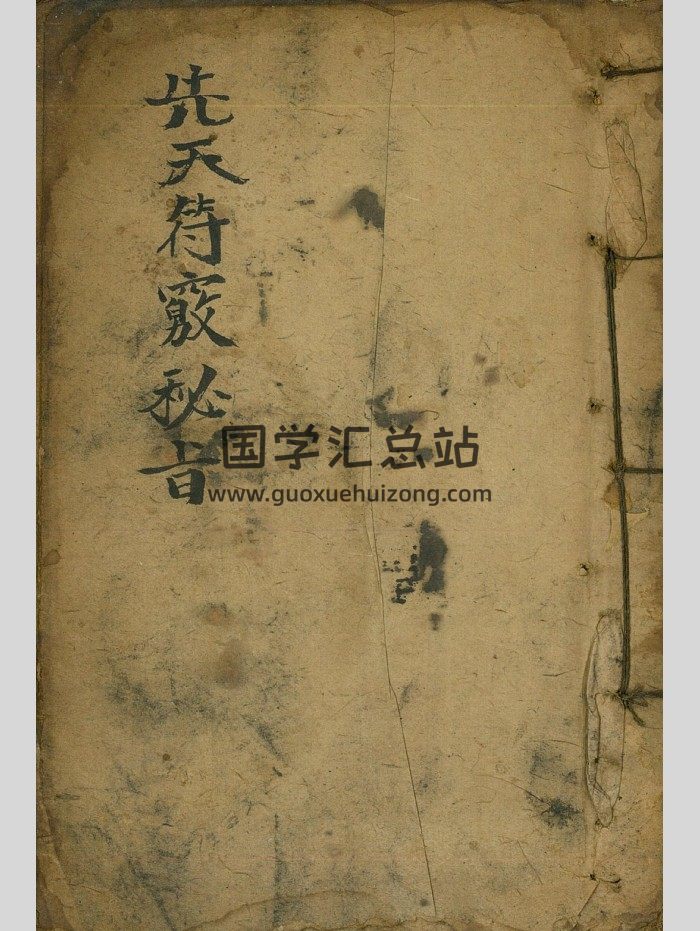 先天符竅秘旨
国学汇总站
www.guoxuehuizong.com